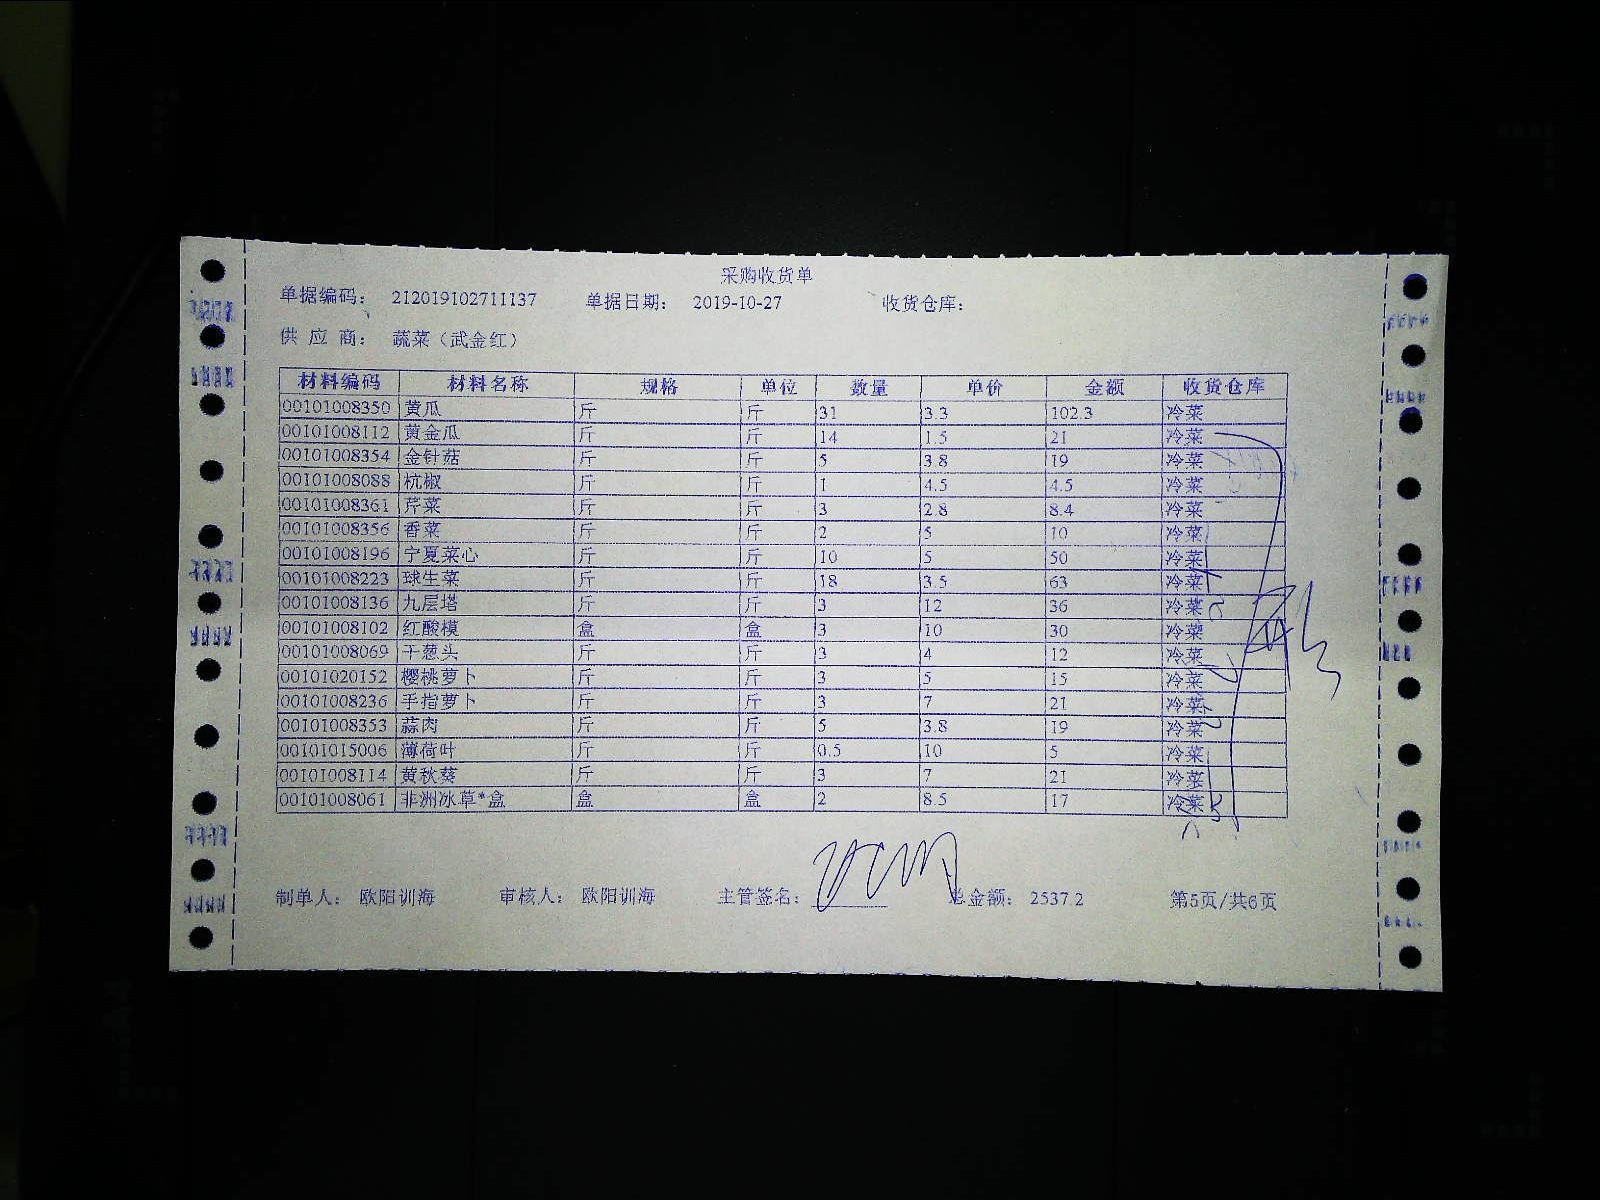 采购收货单
单据编码： 212019102711137 单据日期： 2019-10-27 收货仓库：
供 应 商： 蔬菜（武金红）
材料编码 材料名称 规格 单位 数量 单价 金额 收货仓库
00101008350 黄瓜 斤 斤 31 3.3 102.3 冷菜
00101008112 黄金瓜 斤 斤 14 1.5 21 冷菜
00101008354 金针菇 斤 斤 5 3.8 19 冷菜
00101008088 杭椒 斤 斤 1 4.5 4.5 冷菜
00101008361 芹菜 斤 斤 3 2.8 8.4 冷菜
00101008356 香菜 斤 斤 2 5 10 冷菜
00101008196 宁夏菜心 斤 斤 10 5 50 冷菜
00101008223 球生菜 斤 斤 18 3.5 63 冷菜
00101008136 九层塔 斤 斤 3 12 36 冷菜
00101008102 红酸模 盒 盒 3 10 30 冷菜
00101008069 干葱头 斤 斤 3 4 12 冷菜
00101020152 樱桃萝卜 斤 斤 3 5 15 冷菜
00101008236 手指萝卜 斤 斤 3 7 21 冷菜
00101008353 蒜肉 斤 斤 5 3.8 19 冷菜
00101015006 薄荷叶 斤 斤 0.5 10 5 冷菜
00101008114 黄秋葵 斤 斤 3 7 21 冷菜
00101008061 非洲冰草*盒 盒 盒 2 8.5 17 冷菜
制单人： 欧阳训海 审核人： 欧阳训海 主管签名： 总金额： 2537.2 第5页/共6页